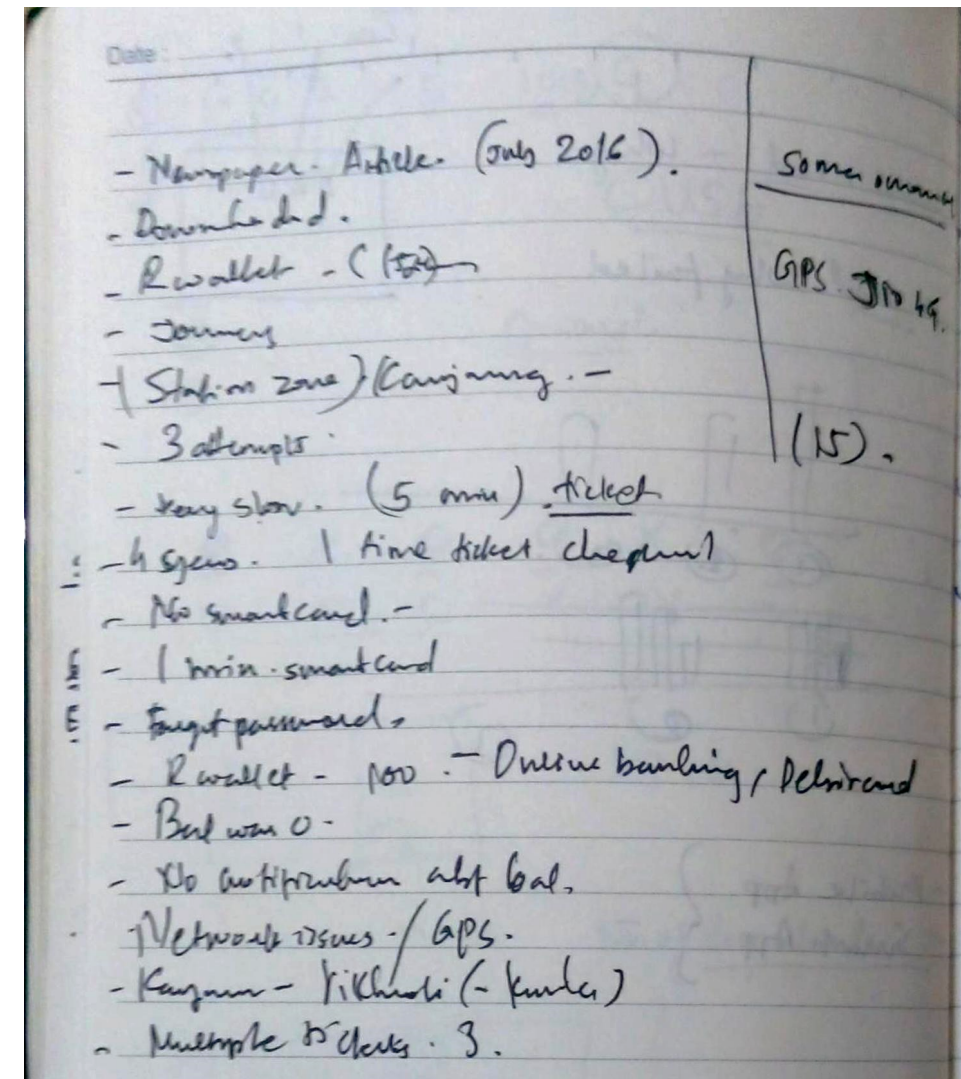 Date :
- Newspaper. Article. (July 2016).
- Downloaded.
- Rwallet - (
- Journey
- (Station zone) Kanjurmg. -
- 3 attempts.
- Very slow. (5 min) ticket
- 4 years. 1 time ticket
- No smartcard. -
- 1 min. smartcard
- Forgot password.
- Rwallet - 100 . - Online banking, Debitcard
- Bal was 0 -
- No notification abt bal.
- Network issues - / GPS.
- - Vikhroli (- Kurla)
- Multiple tickets. 3.
GPS. Jio 4G.
(15).